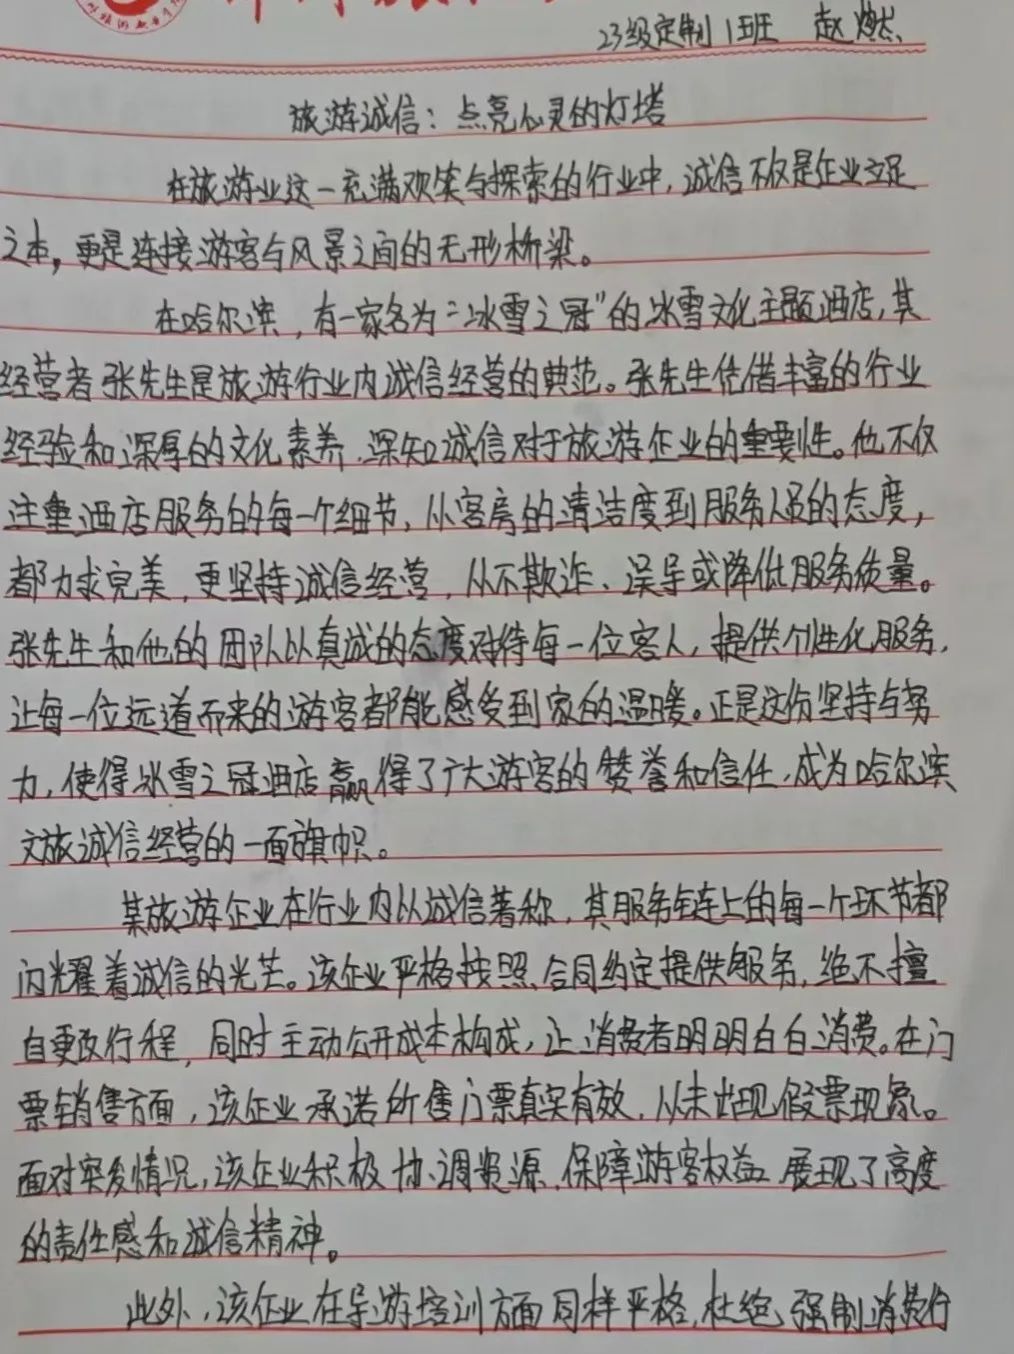 23级定制1班 赵燃
旅游诚信：点亮心灵的灯塔
在旅游业这一充满欢笑与探索的行业中，诚信不仅是企业立足
之本，更是连接游客与风景之间的无形桥梁。
在哈尔滨，有一家名为“冰雪之冠”的冰雪文化主题酒店，其
经营者张先生是旅游行业内诚信经营的典范。张先生凭借丰富的行业
经验和深厚的文化素养，深知诚信对于旅游企业的重要性。他不仅
注重酒店服务的每一个细节，从客房的清洁度到服务员的态度，
都力求完美，更坚持诚信经营，从不欺诈、误导或降低服务质量。
张先生和他的团队以真诚的态度对待每一位客人，提供个性化服务，
让每一位远道而来的游客都能感受到家的温暖。正是这份坚持与努
力，使得冰雪之冠酒店赢得了广大游客的赞誉和信任，成为哈尔滨
文旅诚信经营的一面旗帜。
某旅游企业在行业内以诚信著称，其服务链上的每一个环节都
闪耀着诚信的光芒。该企业严格按照合同约定提供服务，绝不擅
自更改行程，同时主动公开成本构成，让消费者明明白白消费。在门
票销售方面，该企业承诺所售门票真实有效，从未出现假票现象。
面对突发情况，该企业积极协调资源，保障游客权益，展现了高度
的责任感和诚信精神。
此外，该企业在导游培训方面同样严格，杜绝强制消费行